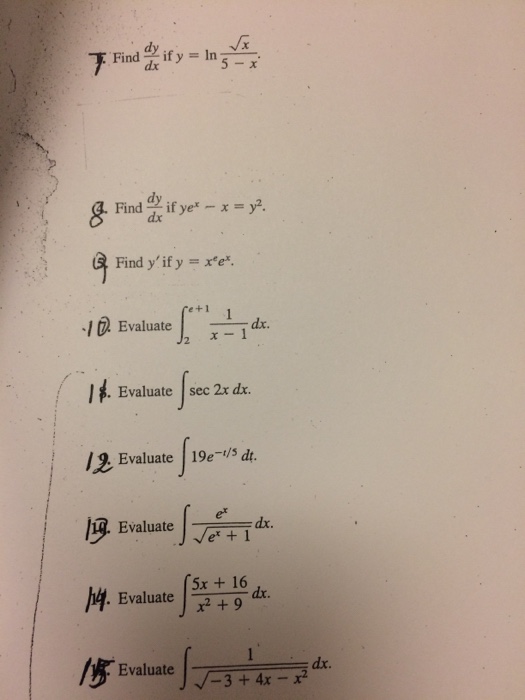 7. Find dy/dx if y = ln √x/(5 − x).
8. Find dy/dx if ye^x − x = y².
9 Find y′ if y = x^e e^x.
10. Evaluate ∫_2^{e+1} 1/(x − 1) dx.
11. Evaluate ∫ sec 2x dx.
12. Evaluate ∫ 19e^{−t/5} dt.
13. Evaluate ∫ e^x/√(e^x + 1) dx.
14. Evaluate ∫ (5x + 16)/(x² + 9) dx.
15. Evaluate ∫ 1/√(−3 + 4x − x²) dx.